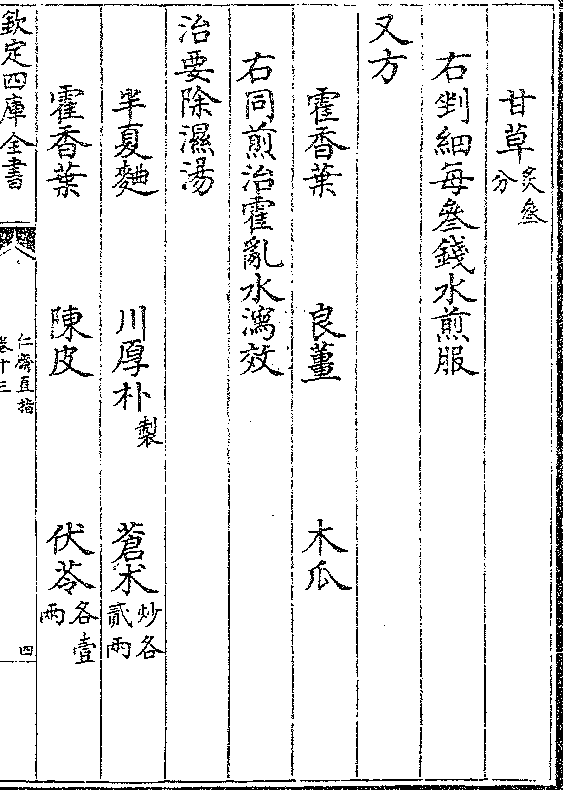 甘草炙叄分
右剉細每叄錢水煎服
又方
藿香葉 良薑 木瓜
右同煎治霍亂水瀉效
治要除濕湯
半夏麯 川厚朴製 蒼术炒各貳兩
藿香葉 陳皮 伏苓各壹兩
欽定四庫全書 仁齋直指卷十三 四